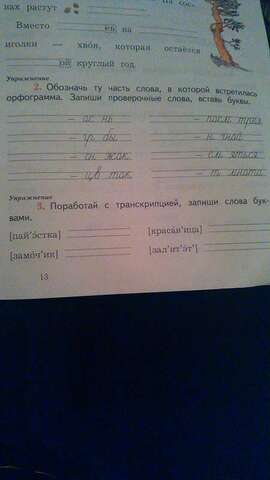 нах растут
Вместо ей на
иголки — хвоя, которая остаётся
ой круглый год.
Упражнение
2. Обозначь ту часть слова, в которой встретилась
орфограмма. Запиши проверочные слова, вставь буквы.
– ос нь – посм трел
– гр бы – н чной
– сн жок – см яться
– цв ток – т мнота
Упражнение
3. Поработай с транскрипцией, запиши слова бук-
вами.
[пай'э́стка] [краса́в'ица]
[замо́ч'ик] [зал'ит'э́т']
13